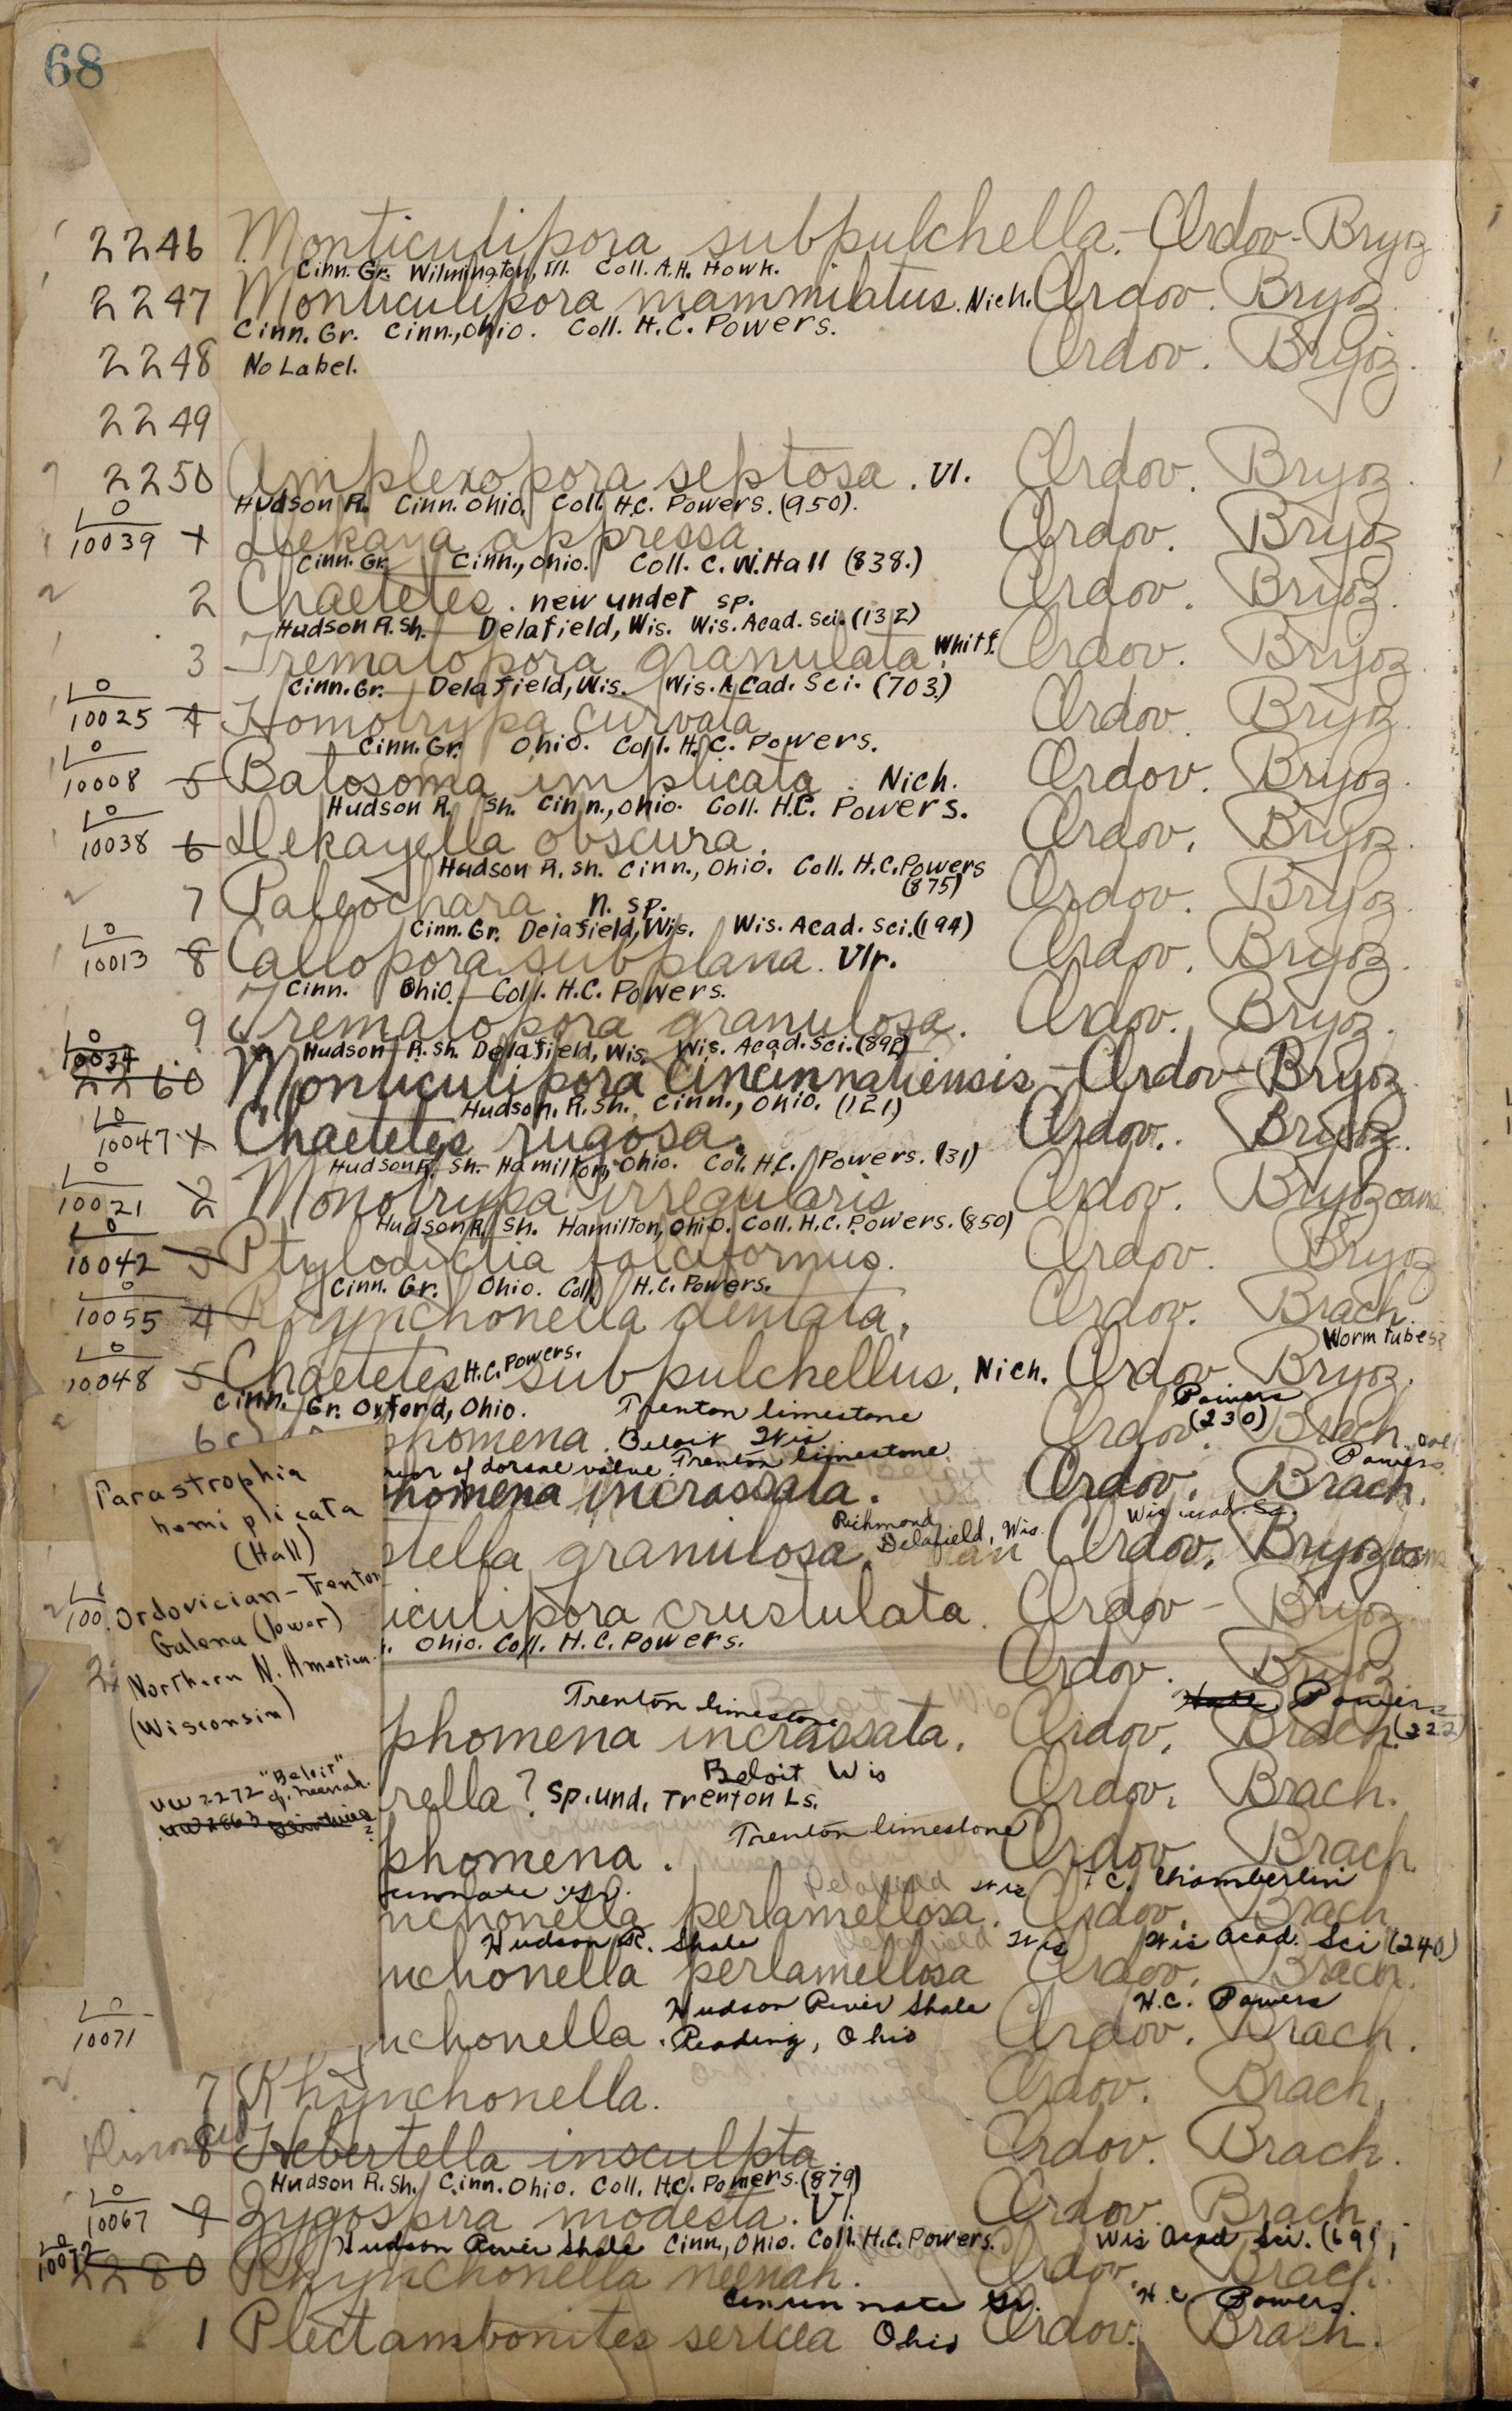 68
2246 Monticulipora subpulchella. - Ordov - Bryoz
Cinn. Gr. Wilmington, Ill. Coll. A.H. Howk.
2247 Monticulipora mammilatus. Nich. Ordov. Bryoz
Cinn. Gr. Cinn., Ohio. Coll. H.C. Powers.
2248 No Label. Ordov. Bryoz.
2249
2250 Amplexopora septosa. Ul. Ordov. Bryoz.
Hudson R. Cinn. Ohio. Coll. H.C. Powers. (950).
10039 1 Dekaya appressa Ordov. Bryoz
Cinn. Gr. Cinn., Ohio. Coll. C.W. Hall (838.)
2 Chaetetes. new undet sp. Ordov. Bryoz.
Hudson R. Sh. Delafield, Wis. Wis. Acad. Sci. (132)
3 Trematopora granulata. Whitf. Ordov. Bryoz.
Cinn. Gr. Delafield, Wis. Wis. Acad. Sci. (703)
10025 4 Homotrypa curvata Ordov Bryoz.
Cinn. Gr. Ohio. Coll. H.C. Powers.
10008 5 Batosoma implicata. Nich. Ordov. Bryoz.
Hudson R. Sh. Cinn., Ohio. Coll. H.C. Powers.
10038 6 Dekayella obscura. Ordov. Bryoz.
Hudson R. Sh. Cinn., Ohio. Coll. H.C. Powers
(875)
7 Paleochara. n. sp. Ordov. Bryoz.
Cinn. Gr. Delafield, Wis. Wis. Acad. Sci. (194)
10013 8 Callopora subplana. Ulr. Ordov. Bryoz.
Cinn. Ohio. Coll. H.C. Powers.
9 Trematopora granulosa. Ordov. Bryoz.
Hudson R. Sh. Delafield, Wis. Wis. Acad. Sci. (892)
10034
2260 Monticulipora Cincinnatiensis - Ordov - Bryoz
Hudson. R. Sh. Cinn., Ohio. (121)
10047 1 Chaetetes rugosa. Ordov. Bryoz.
Hudson R. Sh. Hamilton, Ohio. Col. H.C. Powers. (31)
10021 2 Monotrypa irregularis Ordov. Bryozoans
Hudson R. Sh. Hamilton, Ohio. Coll. H.C. Powers. (850)
10042 3 Ptylodictia falciformis. Ordov. Bryoz
Cinn. Gr. Ohio. Coll. H.C. Powers.
10055 4 Rhynchonella dentata. Ordov. Brach.
Worm tubes?
10048 5 Chaetetes H.C. Powers. subpulchellus. Nich. Ordov Bryoz.
Cinn. Gr. Oxford, Ohio. Trenton limestone Powers
(230)
6 phomena. Beloit Wis Ordov. Brach. Coll
rior of dorsal valve. Trenton limestone. Powers
homena incrassata. Ordov. Brach.
Richmond Delafield, Wis. Wis Acad. Sc.
tella granulosa. Ordov. Bryozoans
100 iculipora crustulata. Ordov - Bryoz
Ohio. Coll. H.C. Powers.
Ordov. Bryoz
Trenton limestone Powers
phomena incrassata. Ordov. Brach. (222)
Beloit Wis
rella? Sp. und. Trenton Ls. Ordov. Brach.
Trenton limestone
phomena. Ordov Brach.
Delafield Wis T.C. Chamberlin
nchonella perlamellosa. Ordov. Brach
Hudson R. Shale Delafield Wis Wis Acad. Sci (240)
nchonella perlamellosa Ordov. Brach.
Hudson River Shale H.C. Powers
10071 nchonella. Reading, Ohio Ordov. Brach.
7 Rhynchonella. Ordov. Brach.
8 Hebertella insculpta. Ordov. Brach.
Hudson R. Sh. Cinn. Ohio. Coll. H.C. Powers. (879)
10067 9 Zygospira modesta. Ul. Ordov. Brach.
Hudson River Shale Cinn., Ohio. Coll. H.C. Powers. Wis Acad Sci. (691)
10072
2280 Rhynchonella neenah. Ordov. Brach.
H.C. Powers.
1 Plectambonites sericea Ohio Ordov. Brach.
Parastrophia
hemiplicata
(Hall)
Ordovician - Trenton
Galena (lower)
Northern N. America.
(Wisconsin)
UW 2272 "Beloit"
cf. neenah.
UW 2863